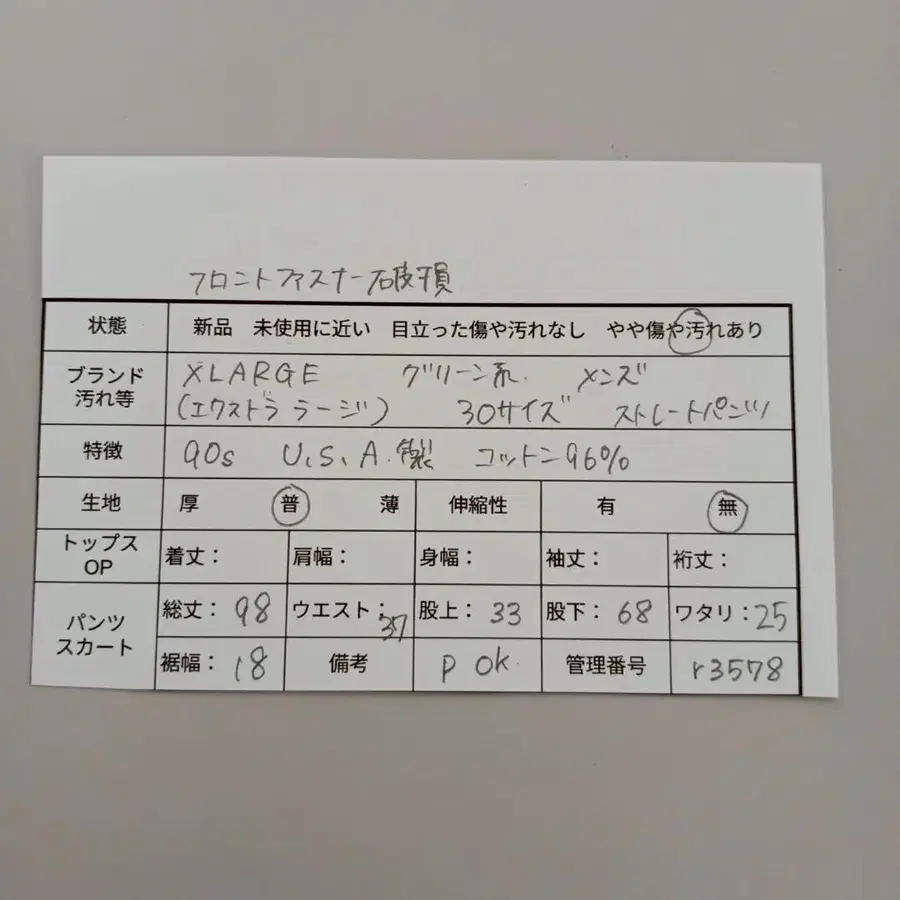 フロントファスナー破損
状態 新品 未使用に近い 目立った傷や汚れなし やや傷や汚れあり
ブランド 汚れ等 XLARGE グリーン系. メンズ
(エクストララージ) 30サイズ ストレートパンツ
特徴 90s U.S.A.製 コットン96%
生地 厚 普 薄 伸縮性 有 無
トップス OP 着丈: 肩幅: 身幅: 袖丈: 裄丈:
パンツ スカート 総丈: 98 ウエスト: 37 股上: 33 股下: 68 ワタリ: 25
裾幅: 18 備考 P OK. 管理番号 r3578